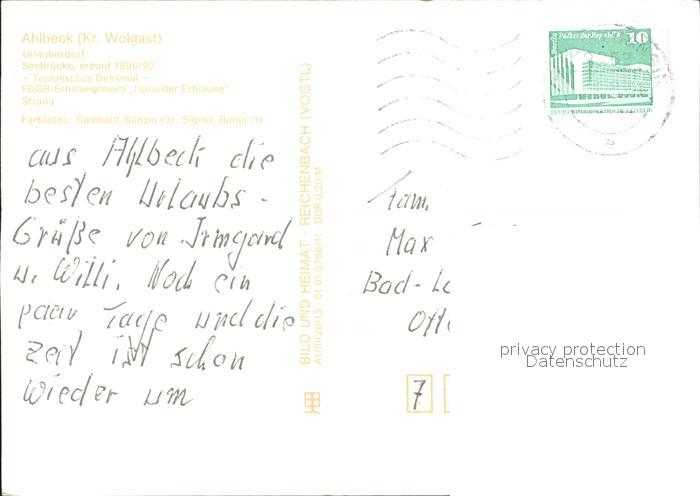 Ahlbeck (Kr. Wolgast)
Urlauberdorf
Seebrücke, erbaut 1890/92
– Technisches Denkmal –
FDGB-Erholungsheim „Haus der Erholung"
Strand
Farbfotos: Reinhold, Bansin (3); Signst, Berlin (1)
aus Ahlbeck die
besten Urlaubs-
Grüße von Irmgard
u. Willi. Noch ein
paar Tage und die
Zeit ist schon
wieder um
BILD UND HEIMAT · REICHENBACH (VOGTL)
DDR 0,20 M
Berlin, Palast der Republik
10
DEUTSCHE DEMOKRATISCHE REPUBLIK
Fam.
Max
Bad-
Ott
7
privacy protection
Datenschutz